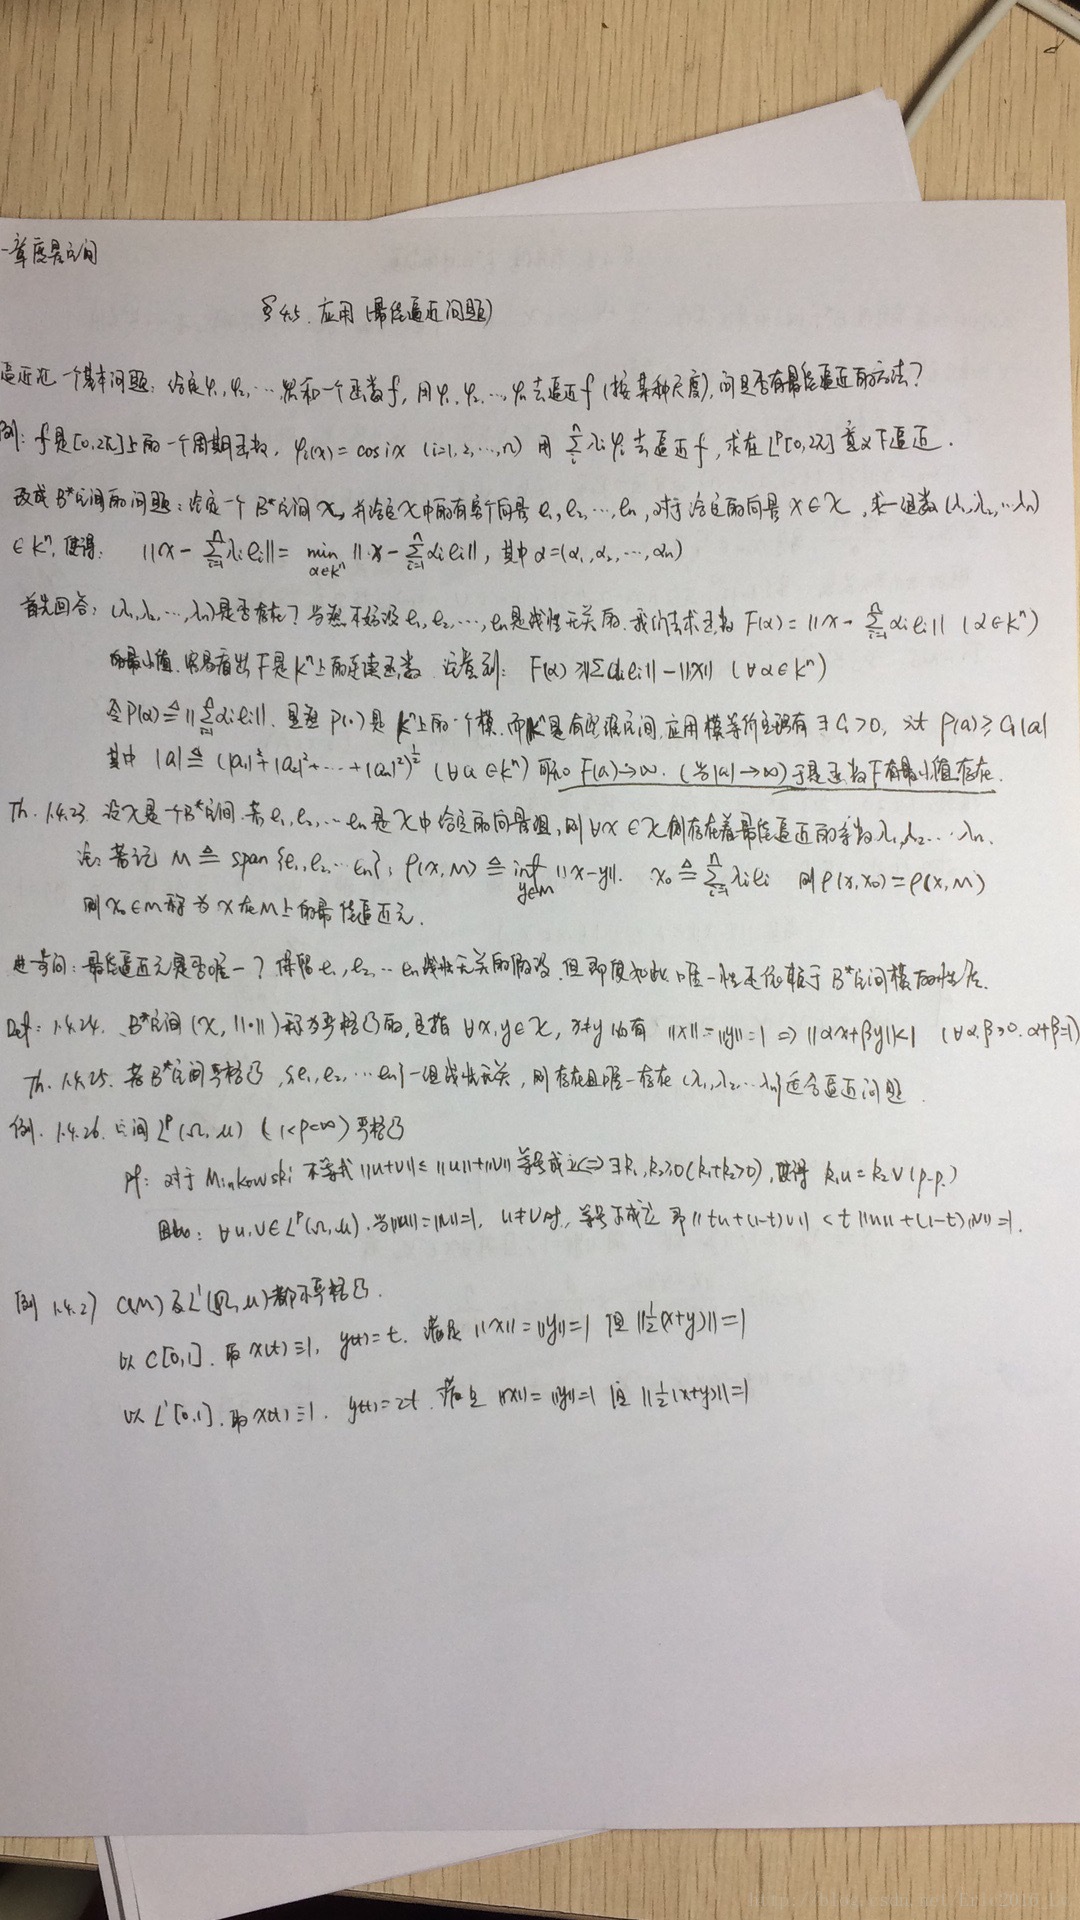 一章 度量空间
§4.5. 应用 (最佳逼近问题)
逼近论一个基本问题: 给定φ₁, φ₂, …, φₙ和一个函数f, 用φ₁, φ₂, …, φₙ去逼近f (按某种尺度), 问是否有最佳逼近的方法?
例: f是[0,2π]上的一个周期函数, φᵢ(x) = cos ix (i=1,2,…,n) 用 Σᵢⁿ λᵢφᵢ 去逼近f, 求在Lᵖ[0,2π]意义下逼近.
改成B*空间的问题: 给定一个B*空间𝒳, 并给定𝒳中的有穷个向量 e₁, e₂, …, eₙ, 对于给定的向量 x∈𝒳, 求一组数(λ₁,λ₂,…λₙ)
∈Kⁿ, 使得: ||x − Σᵢ₌₁ⁿ λᵢeᵢ|| = min_{α∈Kⁿ} ||x − Σᵢ₌₁ⁿ αᵢeᵢ||, 其中 α=(α₁,α₂,…,αₙ)
首先回答: (λ₁,λ₂,…,λₙ)是否存在? 当然不妨设e₁, e₂, …, eₙ是线性无关的. 我们去求函数 F(α) = ||x − Σᵢ₌₁ⁿ αᵢeᵢ|| (α∈Kⁿ)
的最小值. 容易看出 F是Kⁿ上的连续函数 注意到: F(α) ≥ ||Σαᵢeᵢ|| − ||x|| (∀α∈Kⁿ)
令P(α) ≜ ||Σᵢ₌₁ⁿ αᵢeᵢ||. 显然 P(·)是Kⁿ上的一个模. 而Kⁿ是有限维空间, 应用模等价定理有 ∃C₁>0, st P(α) ≥ C₁|α|
其中 |α| ≜ (|α₁|²+|α₂|²+…+|αₙ|²)^½ (∀α∈Kⁿ) 可知 F(α)→∞. (当|α|→∞) 于是函数F有最小值存在.
Th. 1.4.23. 设𝒳是一个B*空间. 若e₁, e₂, … eₙ是𝒳中给定的向量组, 则∀x∈𝒳 存在着最佳逼近的系数λ₁, λ₂…λₙ.
注: 若记 M ≜ span{e₁, e₂, … eₙ}; ρ(x, M) ≜ inf_{y∈M} ||x−y||. x₀ ≜ Σᵢ₌₁ⁿ λᵢeᵢ 则 ρ(x, x₀) = ρ(x, M)
则x₀∈M称为x在M上的最佳逼近元.
进步问: 最佳逼近元是否唯一? 保留e₁, e₂, … eₙ线性无关的假设, 但即使如此, 唯一性还依赖于B*空间模的性质.
Def: 1.4.24. B*空间(𝒳, ||·||)称为严格凸的, 是指 ∀x,y∈𝒳, x≠y 均有 ||x||=||y||=1 ⇒ ||αx+βy||<1 (∀α,β>0. α+β=1)
Th. 1.4.25. 若B*空间严格凸, {e₁, e₂, … eₙ}一组线性无关, 则存在且唯一存在 (λ₁, λ₂…λₙ)适合逼近问题.
例. 1.4.26. 空间Lᵖ(Ω,μ) (1<p<∞) 严格凸
pf: 对于Minkowski 不等式 ||u+v|| ≤ ||u||+||v|| 等号成立⟺∃k₁, k₂≥0 (k₁+k₂>0), 使得 k₁u = k₂v (p.p.)
因此: ∀u,v∈Lᵖ(Ω,μ). 当||u||=||v||=1, u≠v时, 等号不成立 即||tu+(1−t)v|| < t||u||+(1−t)||v||=1.
例 1.4.27 C(M)及L¹(Ω,μ)都不严格凸.
以C[0,1]. 取x(t)≡1, y(t)=t. 满足 ||x||=||y||=1 但||½(x+y)||=1
以L¹[0,1]. 取x(t)≡1. y(t)=2t. 满足 ||x||=||y||=1 但||½(x+y)||=1